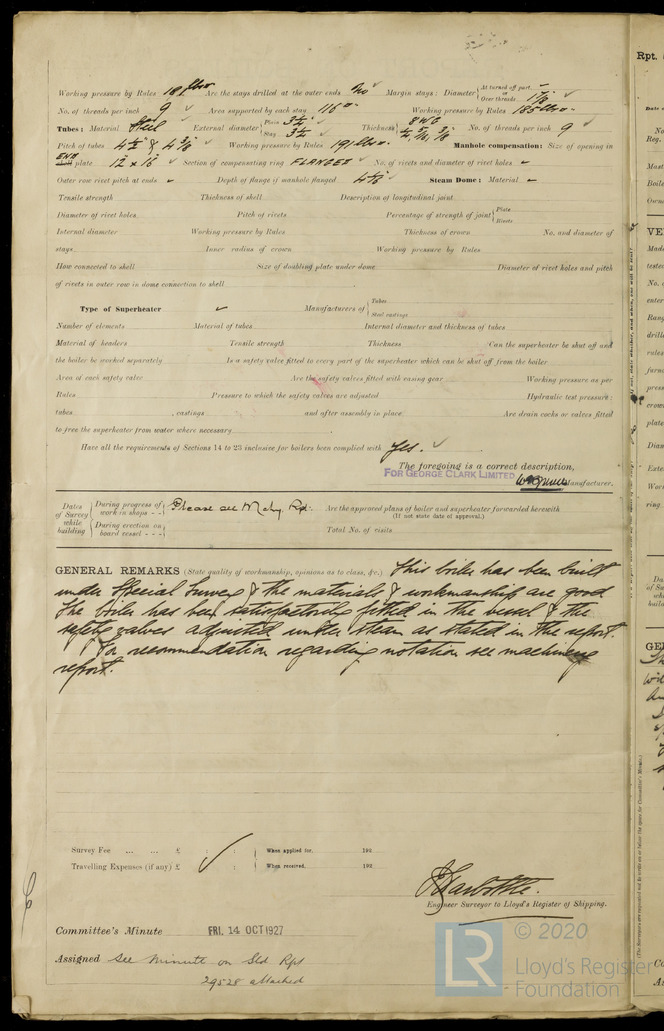 Working pressure by Rules 181 lbs Are the stays drilled at the outer ends No Margin stays: Diameter { At turned off part, or Over threads 1 7/8
No. of threads per inch 9 Area supported by each stay 116 Working pressure by Rules 185 lbs
Tubes: Material Steel External diameter { Plain 3 1/2 Stay 3 1/2 Thickness { 8 WG 1/4, 5/16, 3/8 No. of threads per inch 9
Pitch of tubes 4 1/2 & 4 3/8 Working pressure by Rules 191 lbs. Manhole compensation: Size of opening in
END plate 12 x 16 Section of compensating ring FLANGED No. of rivets and diameter of rivet holes
Outer row rivet pitch at ends Depth of flange if manhole flanged Steam Dome: Material
Tensile strength Thickness of shell Description of longitudinal joint
Diameter of rivet holes Pitch of rivets Percentage of strength of joint { Plate Rivets
Internal diameter Working pressure by Rules Thickness of crown No. and diameter of
stays Inner radius of crown Working pressure by Rules
How connected to shell Size of doubling plate under dome Diameter of rivet holes and pitch
of rivets in outer row in dome connection to shell
Type of Superheater Manufacturers of { Tubes Steel castings
Number of elements Material of tubes Internal diameter and thickness of tubes
Material of headers Tensile strength Thickness Can the superheater be shut off and
the boiler be worked separately Is a safety valve fitted to every part of the superheater which can be shut off from the boiler
Area of each safety valve Are the safety valves fitted with easing gear Working pressure as per
Rules Pressure to which the safety valves are adjusted Hydraulic test pressure:
tubes , castings and after assembly in place Are drain cocks or valves fitted
to free the superheater from water where necessary
Have all the requirements of Sections 14 to 23 inclusive for boilers been complied with Yes.
The foregoing is a correct description,
FOR GEORGE CLARK LIMITED Manufacturer.
Dates of Survey while building { During progress of work in shops - - Please see Mchy. Rpt. Are the approved plans of boiler and superheater forwarded herewith
(If not state date of approval.)
During erection on board vessel - - - Total No. of visits
GENERAL REMARKS (State quality of workmanship, opinions as to class, &c.) This boiler has been built
under Special Survey & the materials & workmanship are good
The boiler has been satisfactorily fitted in the vessel & the
safety valves adjusted under steam as stated in the report.
For recommendation regarding notation see machinery
report.
Survey Fee ... ... £ : : When applied for, 192
Travelling Expenses (if any) £ : : When received, 192
Engineer Surveyor to Lloyd's Register of Shipping.
Committee's Minute FRI. 14 OCT 1927
Assigned See minute on Sld Rpt
29528 attached
LR © 2020
Lloyd's Register
Foundation
Rpt.